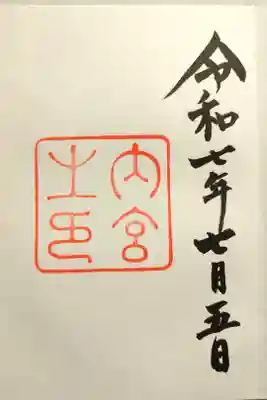 令和七年七月五日
内宮
之印